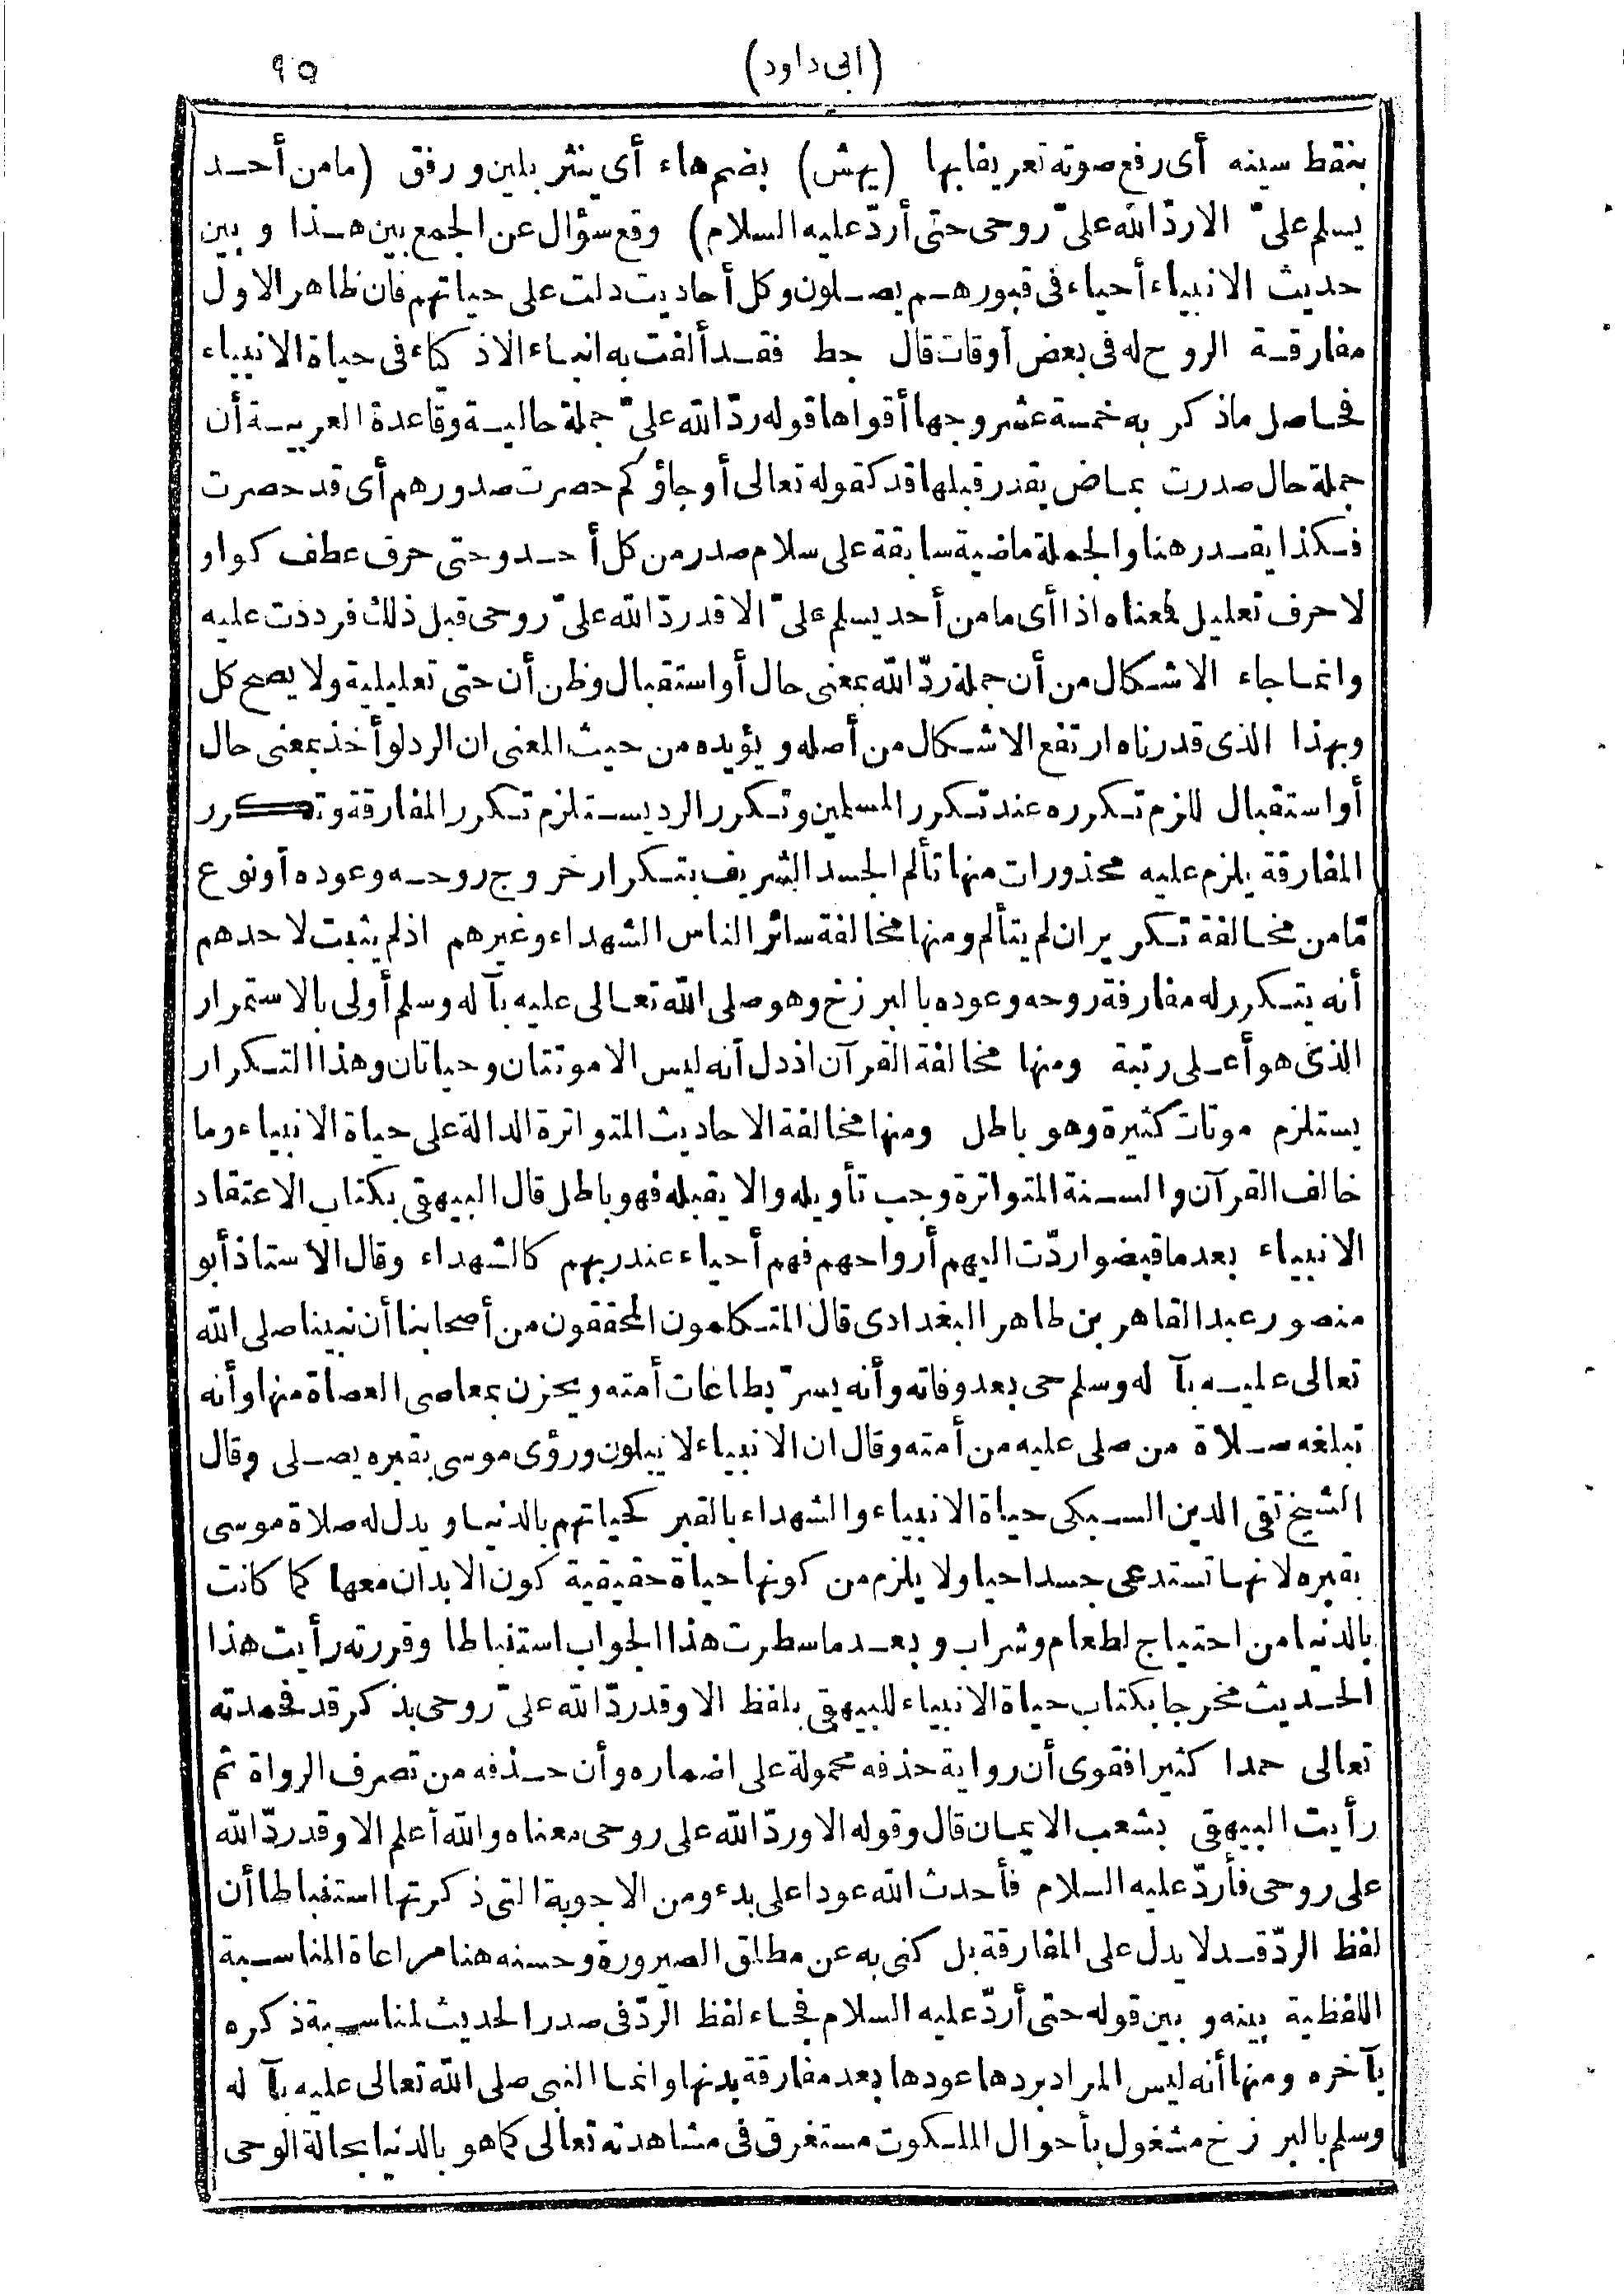 (ابى داود)
٩٥
بنقط سينه أى رفع صوته تعريفا بها (يهش) بضم هاء أى ينثر بلين ورفق (مامن أحد
يسلم علىّ الا ردّ الله علىّ روحى حتى أردّ عليه السلام) وقع سؤال عن الجمع بين هذا وبين
حديث الانبياء أحياء فى قبورهم يصلون وكل أحاديث دلت على حياتهم فان ظاهر الاول
مفارقة الروح له فى بعض أوقات قال حط فقد ألفت به انباء الاذكاء فى حياة الانبياء
فحاصل ماذكر به خمسة عشر وجها أقواها قوله ردّ الله علىّ جملة حالية وقاعدة العربية أن
جملة حال صدرت بماض يقدر قبلها قد كقوله تعالى أو جاؤكم حصرت صدورهم أى قد حصرت
فكذا يقدر هنا والجملة ماضية سابقة على سلام صدر من كل أحد وحتى حرف عطف كواو
لا حرف تعليل فمعناه اذا أى مامن أحد يسلم علىّ الا قد ردّ الله علىّ روحى قبل ذلك فرددت عليه
وانما جاء الاشكال من أن جملة ردّ الله بمعنى حال أو استقبال وظن أن حتى تعليلية ولا يصح كل
وبهذا الذى قدرناه ارتفع الاشكال من أصله ويؤيده من حيث المعنى ان الرد لو أخذ بمعنى حال
أو استقبال للزم تكرره عند تكرر المسلمين وتكرر الرد يستلزم تكرر المفارقة وتكرر
المفارقة يلزم عليه محذورات منها تألم الجسد الشريف بتكرار خروج روحه وعوده أو نوع
مّا من مخالفة تكرير ان لم يتألم ومنها مخالفة سائر الناس الشهداء وغيرهم اذ لم يثبت لاحدهم
أنه يتكرر له مفارقة روحه وعوده بالبرزخ وهو صلى الله تعالى عليه بآله وسلم أولى بالاستمرار
الذى هو أعلى رتبة ومنها مخالفة القرآن اذ دل أنه ليس الا موتتان وحياتان وهذا التكرار
يستلزم موتات كثيرة وهو باطل ومنها مخالفة الاحاديث المتواترة الدالة على حياة الانبياء وما
خالف القرآن والسنة المتواترة وجب تأويله والا يقبله فهو باطل قال البيهقى بكتاب الاعتقاد
الانبياء بعد ما قبضوا ردّت اليهم أرواحهم فهم أحياء عند ربهم كالشهداء وقال الاستاذ أبو
منصور عبد القاهر بن طاهر البغدادى قال المتكلمون المحققون من أصحابنا أن نبينا صلى الله
تعالى عليه بآله وسلم حى بعد وفاته وأنه يسرّ بطاعات أمته ويحزن بمعاصى العصاة منها وأنه
تبلغه صلاة من صلى عليه من أمته وقال ان الانبياء لا يبلون ورؤى موسى بقبره يصلى وقال
الشيخ تقى الدين السبكى حياة الانبياء والشهداء بالقبر كحياتهم بالدنيا ويدل له صلاة موسى
بقبره لانها تستدعى جسدا حيا ولا يلزم من كونها حياة حقيقية كون الابدان معها كما كانت
بالدنيا من احتياج لطعام وشراب وبعد ما سطرت هذا الجواب استنباطا وقررته رأيت هذا
الحديث مخرجا بكتاب حياة الانبياء للبيهقى بلفظ الا وقد ردّ الله علىّ روحى بذكر قد فحمدته
تعالى حمدا كثيرا فقوى أن رواية حذفه محمولة على اضماره وأن حذفه من تصرف الرواة ثم
رأيت البيهقى بشعب الايمان قال وقوله الا وردّ الله على روحى معناه والله أعلم الا وقد ردّ الله
على روحى فأردّ عليه السلام فأحدث الله عودا على بدء ومن الاجوبة التى ذكرتها استنباطا أن
لفظ الردّ قد لا يدل على المفارقة بل كنى به عن مطلق الصيرورة وحسنه هنا مراعاة المناسبة
اللفظية بينه وبين قوله حتى أردّ عليه السلام فجاء لفظ الردّ فى صدر الحديث لمناسبة ذكره
بآخره ومنها أنه ليس المراد بردها عودها بعد مفارقة بدنها وانما النبى صلى الله تعالى عليه بآله
وسلم بالبرزخ مشغول بأحوال الملكوت مستغرق فى مشاهدته تعالى كما هو بالدنيا بحالة الوحى